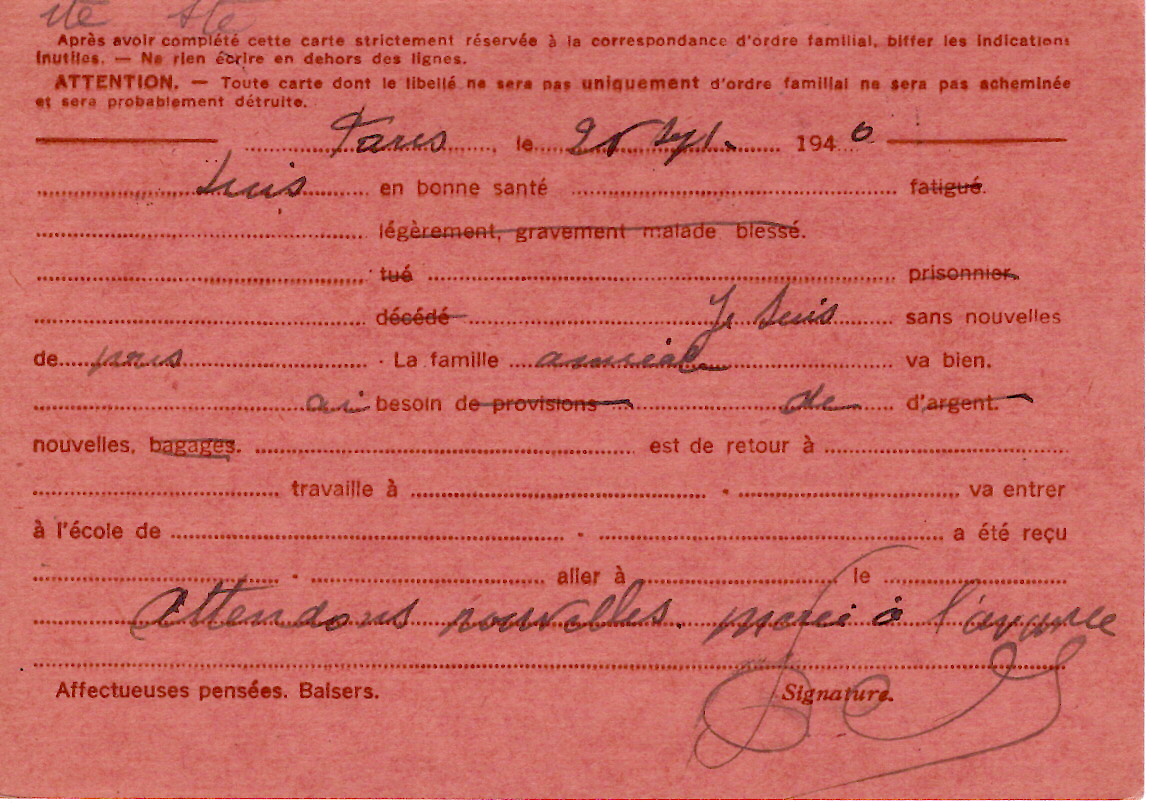 Après avoir complété cette carte strictement réservée à la correspondance d'ordre familial, biffer les indications
inutiles. — Ne rien écrire en dehors des lignes.
ATTENTION. — Toute carte dont le libellé ne sera pas uniquement d'ordre familial ne sera pas acheminée
et sera probablement détruite.
Paris, le 20 Sept. 1940
suis en bonne santé fatigué.
légèrement, gravement malade blessé.
tué prisonnier.
décédé Je suis sans nouvelles
de · La famille va bien.
ai besoin de provisions de d'argent.
nouvelles, bagages. est de retour à
travaille à · va entrer
à l'école de · a été reçu
· aller à le
Attendons nouvelles. merci à l'avance
Affectueuses pensées. Baisers. Signature.